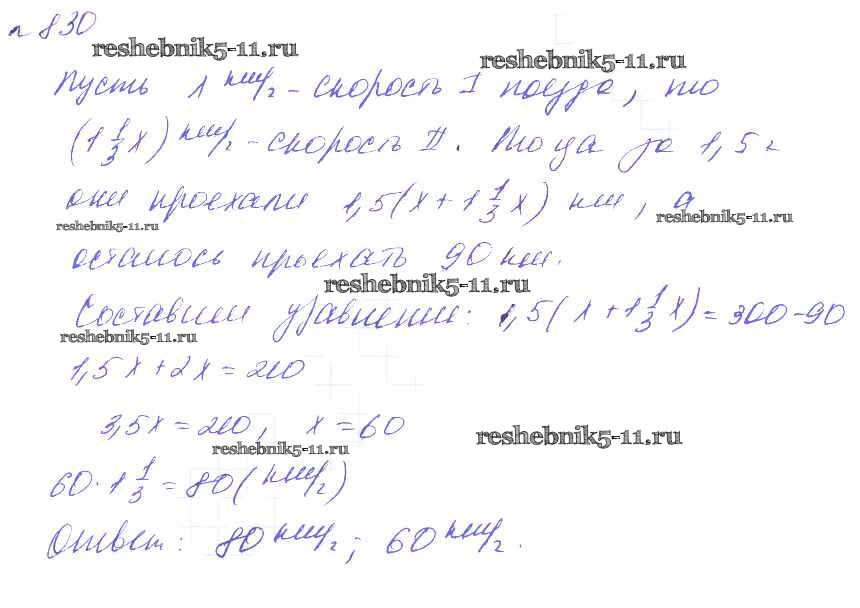 № 830
reshebnik5-11.ru reshebnik5-11.ru
Пусть x км/ч - скорость I поезда, то
(1 1/3 x) км/ч - скорость II. Тогда за 1,5 ч
они проехали 1,5(x + 1 1/3 x) км, а
reshebnik5-11.ru reshebnik5-11.ru
осталось проехать 90 км.
reshebnik5-11.ru
Составим уравнение: 1,5(x + 1 1/3 x) = 300 - 90
reshebnik5-11.ru
1,5x + 2x = 210
3,5x = 210, x = 60
reshebnik5-11.ru reshebnik5-11.ru
60 · 1 1/3 = 80 (км/ч)
Ответ: 80 км/ч; 60 км/ч.